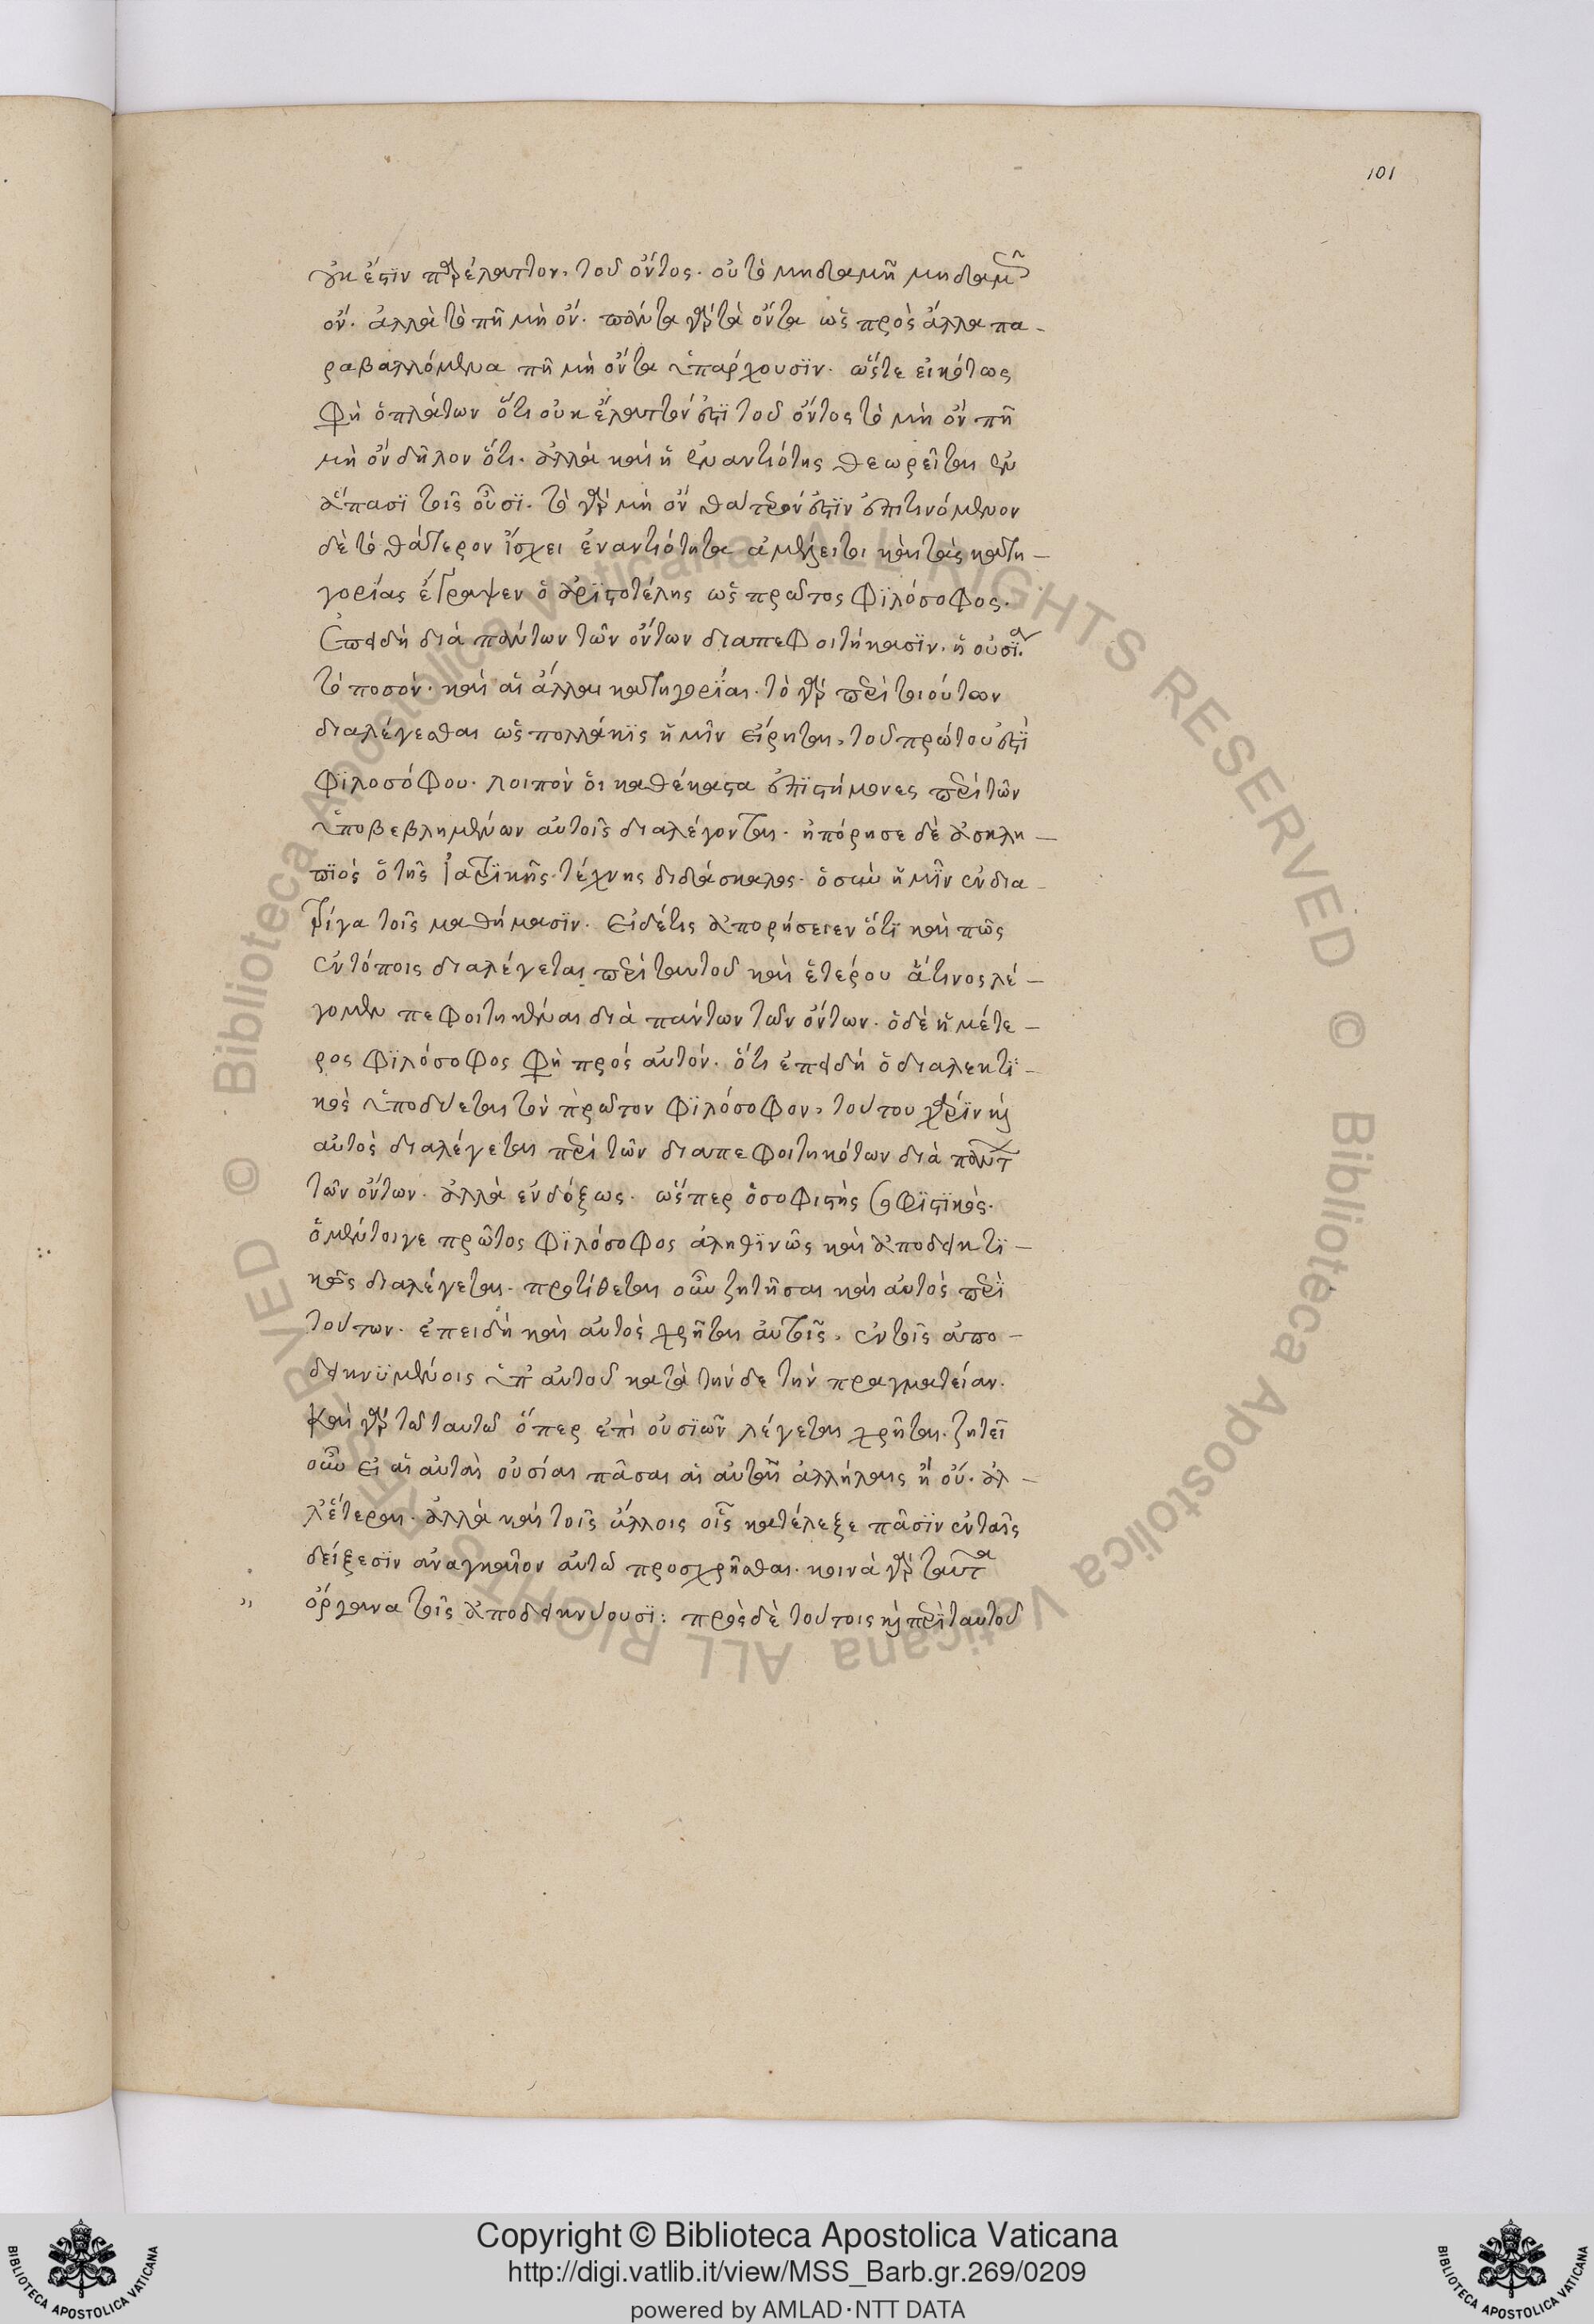 101
οὐκ ἔστιν παρέλαττον τοῦ ὄντος. οὐ τὸ μηδαμῆ μηδαμῶς
ὄν. ἀλλὰ τὸ πῆ μὴ ὄν. πάντα γὰρ τὰ ὄντα ὡς πρὸς ἄλλα πα-
ραβαλλόμενα πῆ μὴ ὄντα ὑπάρχουσϊν. ὥστε εἰκότως
φὴ ὁ πλάτων ὅτι οὐκ ἔλαττόν ἐστϊ τοῦ ὄντος τὸ μὴ ὄν πῆ
μὴ ὄν δῆλον ὅτι. ἀλλὰ καὶ ἡ ἐναντιότης θεωρεῖται ἐν
ἅπασϊ τοῖς οὖσϊ. τὸ γὰρ μὴ ὄν θάτερόν ἐστϊν ἐπιτεινόμενον
δὲ τὸ θάτερον ἴσχει ἐναντιότητα ἀμέλει τοι καὶ τὰς κατη-
γορίας ἔγραψεν ὁ ἀρϊστοτέλης ὡς πρῶτος φϊλόσοφος.
Ἐπειδὴ διὰ πάντων τῶν ὄντων διαπεφοιτήκασϊν. ἡ οὐσϊα
τὸ ποσὸν. καὶ αἱ ἄλλαι κατηγορϊαι. τὸ γὰρ περὶ τοιούτων
διαλέγεσθαι ὡς πολλάκϊς ἡμῖν εἴρηται, τοῦ πρώτου ἐστϊ
φϊλοσόφου. λοιπὸν οἱ καθέκαστα ἐπϊστήμονες περὶ τῶν
ὑποβεβλημένων αὐτοῖς διαλέγονται. ἠπόρησε δὲ ἀσκλη-
πϊὸς ὁ τῆς ἰατρϊκῆς τέχνης διδάσκαλος. ὁ σὺν ἡμῖν ἐνδια-
τρίψα τοῖς μαθήμασϊν. Εἰ δέ τις ἀπορήσειεν ὅτϊ καὶ πῶς
ἐν τόποις διαλέγεται περὶ ταυτοῦ καὶ ἑτέρου ἅτινος λέ-
γομεν πεφοιτηκέναι διὰ πάντων τῶν ὄντων. ὁ δὲ ἡμέτε-
ρος φϊλόσοφος φὴ πρὸς αὐτόν. ὅτι ἐπειδὴ ὁ διαλεκτϊ-
κὸς ὑποδύεται τὸν πρῶτον φϊλόσοφον, τούτου χάρϊν καὶ
αὐτὸς διαλέγεται περὶ τῶν διαπεφοιτηκότων διὰ πάντ
τῶν ὄντων. ἀλλὰ ἐνδόξως. ὥσπερ ὁ σοφιστὴς σοφϊστϊκῶς.
ὁ μέντοιγε πρῶτος φϊλόσοφος ἀληθϊνῶς καὶ ἀποδεικτϊ-
κῶς διαλέγεται. προτίθεται οὖν ζητῆσαι καὶ αὐτὸς περϊ
τούτων. ἐπειδὴ καὶ αὐτὸς χρῆται αὐτοῖς, ἐν τοῖς ἀπο-
δεικνϋμένοις ὑπ' αὐτοῦ κατὰ τήνδε τὴν πραγματείαν.
Καὶ γὰρ τῶ ταυτῶ ὅπερ ἐπὶ οὐσϊῶν λέγεται χρῆται. ζητεῖ
οὖν εἰ αἱ αὐταὶ οὐσίαι πᾶσαι αἱ αὐταὶ ἀλλήλαις ἢ οὔ. ἀλ-
λ' ἕτεραι. ἀλλὰ καὶ τοῖς ἄλλοις οἷς κατέλεξε πᾶσϊν ἐν ταῖς
δείξεσϊν ἀναγκαῖον αὐτῶ προσχρῆσθαι. κοινὰ γὰρ ταῦτα
ὄργανα τοῖς ἀποδεικνύουσϊ: πρὸς δὲ τούτοις καὶ περὶ ταυτοῦ
Copyright © Biblioteca Apostolica Vaticana
http://digi.vatlib.it/view/MSS_Barb.gr.269/0209
powered by AMLAD·NTT DATA